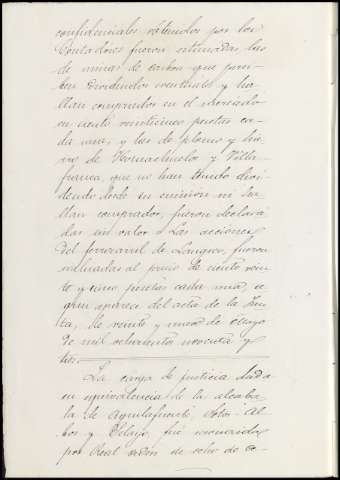 confidenciales obtenidos por los
Contadores fueron estimadas las
de minas de carbon que perci-
ben dividendos eventuales y ha-
llan comprador en el mercado
en ciento veinticinco pesetas ca-
da una, y las de plomo y hie-
rro de Hornachuelos y Villa-
franca, que no han tenido divi-
dendo desde su emisión ni ha-
llan comprador, fueron declara-
das sin valor. Las acciones
del ferrocarril de Langreo, fueron
valuadas al precio de ciento vein-
te y cinco pesetas cada una, se-
gun aparece del acta de la Jun-
ta, de veinte y nueve de Mayo
de mil ochocientos noventa y
tres.
La carga de justicia dada
en equivalencia de la alcaba-
la de Aguilafuente, Otos- al-
bos y Pelayo, fué reconocida
por Real orden de ocho de